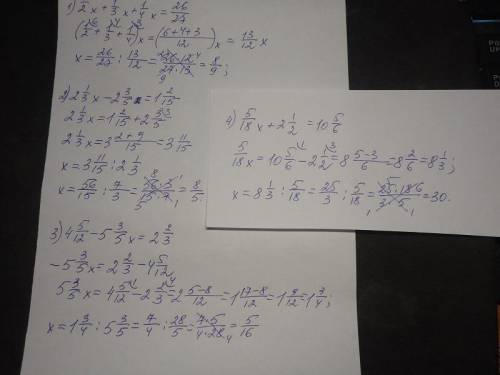 1) 1/2 x + 1/3 x + 1/4 x = 26/27
(1/2 + 1/3 + 1/4) x = (6+4+3 / 12) x = 13/12 x
x = 26/27 : 13/12 = 26·12/27·13 = 8/9;
2) 2 1/3 x - 2 3/5 = 1 2/15
2 1/3 x = 1 2/15 + 2 3/5
2 1/3 x = 3 2+9/15 = 3 11/15
x = 3 11/15 : 2 1/3
x = 56/15 : 7/3 = 56·3/15·7 = 8/5
3) 4 5/12 - 5 3/5 x = 2 2/3
-5 3/5 x = 2 2/3 - 4 5/12
5 3/5 x = 4 5/12 - 2 2/3 = 2 5-8/12 = 1 17-8/12 = 1 9/12 = 1 3/4;
x = 1 3/4 : 5 3/5 = 7/4 : 28/5 = 7·5/4·28 = 5/16
4) 5/18 x + 2 1/2 = 10 5/6
5/18 x = 10 5/6 - 2 1/2 = 8 5-3/6 = 8 2/6 = 8 1/3;
x = 8 1/3 : 5/18 = 25/3 : 5/18 = 25·18/3·5 = 30.